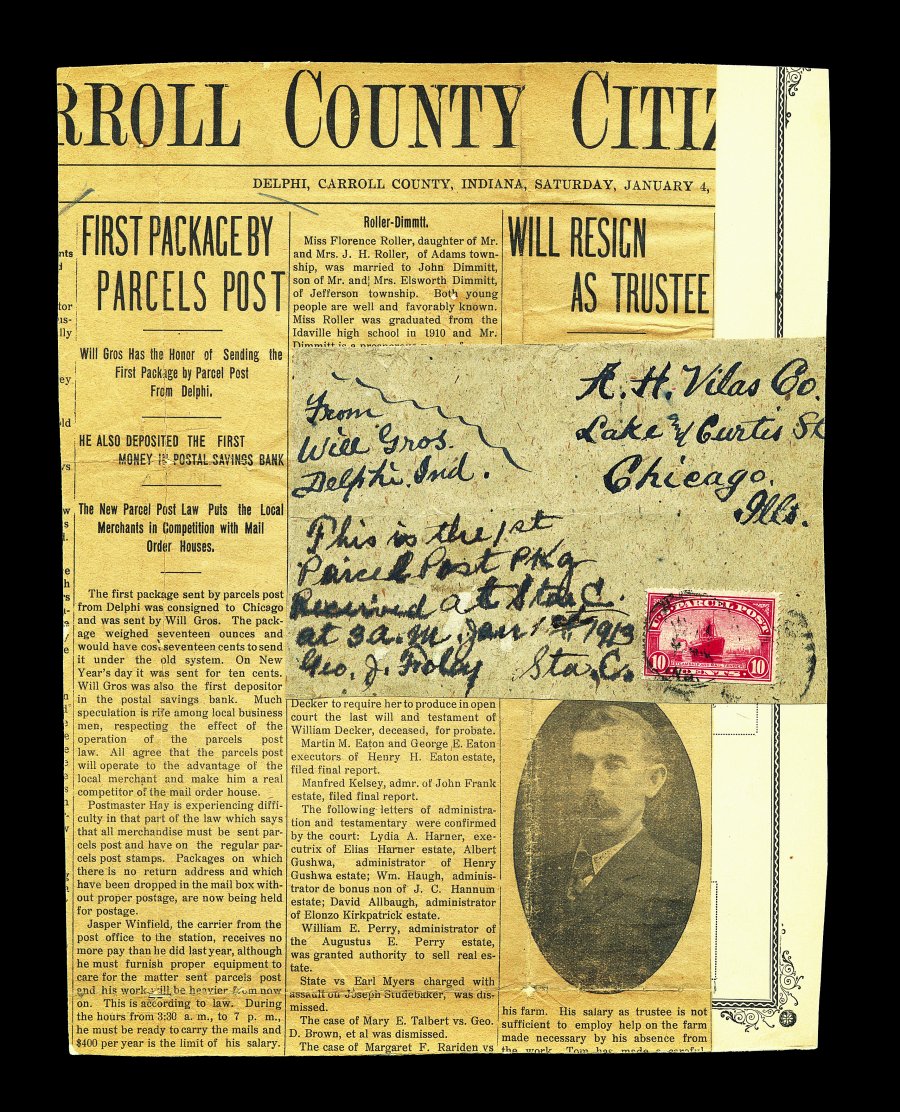 RROLL COUNTY CITIZ
DELPHI, CARROLL COUNTY, INDIANA, SATURDAY, JANUARY 4,
FIRST PACKAGE BY
PARCELS POST
Will Gros Has the Honor of Sending the
First Package by Parcel Post
From Delphi.
HE ALSO DEPOSITED THE FIRST
MONEY IN POSTAL SAVINGS BANK
The New Parcel Post Law Puts the Local
Merchants in Competition with Mail
Order Houses.
The first package sent by parcels post
from Delphi was consigned to Chicago
and was sent by Will Gros. The pack-
age weighed seventeen ounces and
would have cost seventeen cents to send
it under the old system. On New
Year's day it was sent for ten cents.
Will Gros was also the first depositor
in the postal savings bank. Much
speculation is rife among local business
men, respecting the effect of the
operation of the parcels post
law. All agree that the parcels post
will operate to the advantage of the
local merchant and make him a real
competitor of the mail order house.
Postmaster Hay is experiencing diffi-
culty in that part of the law which says
that all merchandise must be sent par-
cels post and have on the regular par-
cels post stamps. Packages on which
there is no return address and which
have been dropped in the mail box with-
out proper postage, are now being held
for postage.
Jasper Winfield, the carrier from the
post office to the station, receives no
more pay than he did last year, although
he must furnish proper equipment to
care for the matter sent parcels post
and his work will be heavier from now
on. This is according to law. During
the hours from 3:30 a. m., to 7 p. m.,
he must be ready to carry the mails and
$400 per year is the limit of his salary.
Roller-Dimmtt.
Miss Florence Roller, daughter of Mr.
and Mrs. J. H. Roller, of Adams town-
ship, was married to John Dimmitt,
son of Mr. and Mrs. Elsworth Dimmitt,
of Jefferson township. Both young
people are well and favorably known.
Miss Roller was graduated from the
Idaville high school in 1910 and Mr.
Dimmitt is a
WILL RESIGN
AS TRUSTEE
From
Will Gros.
Delphi. Ind.
A. H. Vilas Co.
Lake and Curtis St
Chicago.
Ills.
This is the 1st
Parcel Post PKg
Received at Sta. C.
at 3 a.m. Jan 1st 1913
Geo. J. Foley Sta. C.
U.S. PARCEL POST
10 CENTS 10
Decker to require her to produce in open
court the last will and testament of
William Decker, deceased, for probate.
Martin M. Eaton and George E. Eaton
executors of Henry H. Eaton estate,
filed final report.
Manfred Kelsey, admr. of John Frank
estate, filed final report.
The following letters of administra-
tion and testamentary were confirmed
by the court: Lydia A. Harner, exe-
cutrix of Elias Harner estate, Albert
Gushwa, administrator of Henry
Gushwa estate; Wm. Haugh, adminis-
trator de bonus non of J. C. Hannum
estate; David Allbaugh, administrator
of Elonzo Kirkpatrick estate.
William E. Perry, administrator of
the Augustus E. Perry estate,
was granted authority to sell real es-
tate.
State vs Earl Myers charged with
assault on Joseph Studebaker, was dis-
missed.
The case of Mary E. Talbert vs. Geo.
D. Brown, et al was dismissed.
The case of Margaret F. Rariden vs
his farm. His salary as trustee is not
sufficient to employ help on the farm
made necessary by his absence from
the work. Tom has made a careful